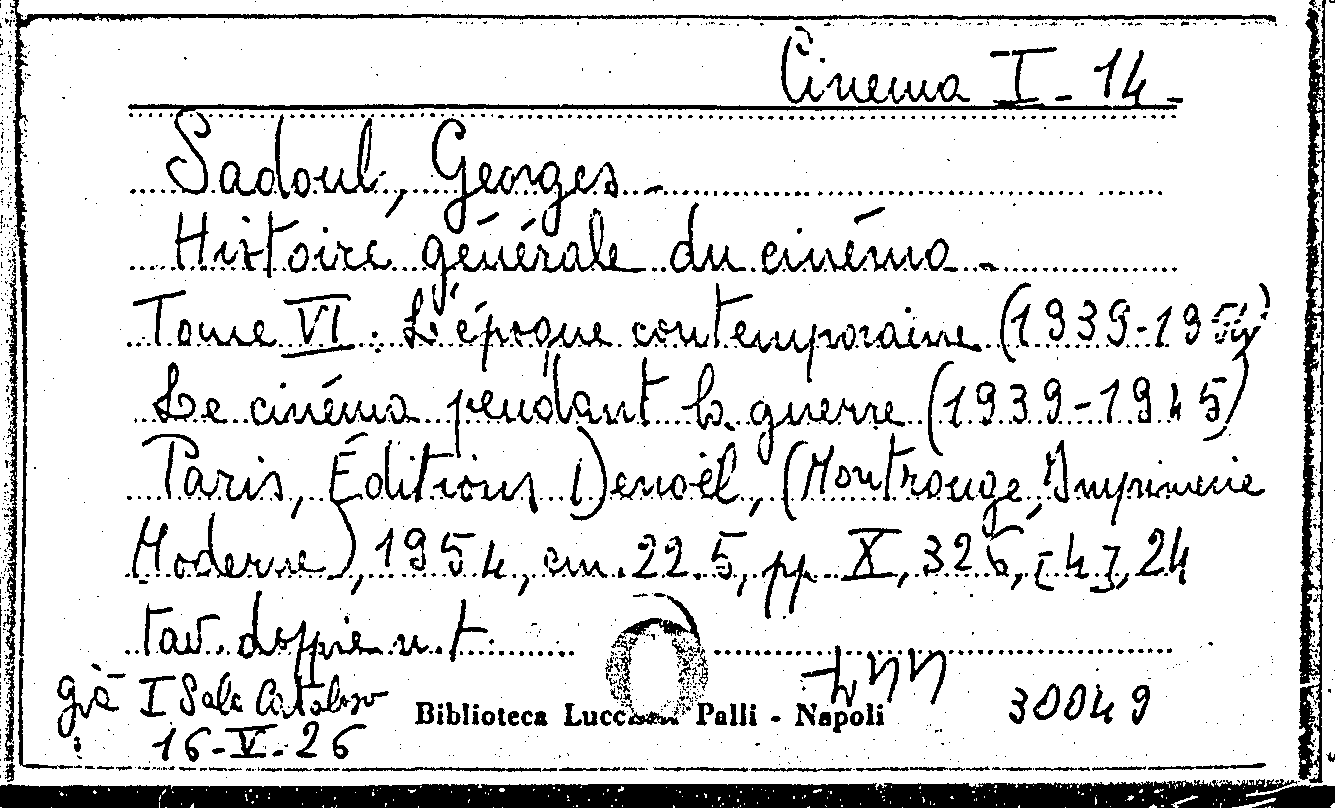 Cinema I-14-
Sadoul, Georges -
Histoire générale du cinéma -
Tome VI: L'époque contemporaine (1939-1954)
Le cinéma pendant la guerre (1939-1945)
Paris, Éditions Denoël, (Montrouge, Imprimerie
Moderne), 1954, cm. 22.5, pp. X, 326, [4], 24
tav. doppie n.t.
già I Sala Catalogo
16-V-26
Biblioteca Lucchesi Palli - Napoli
30049